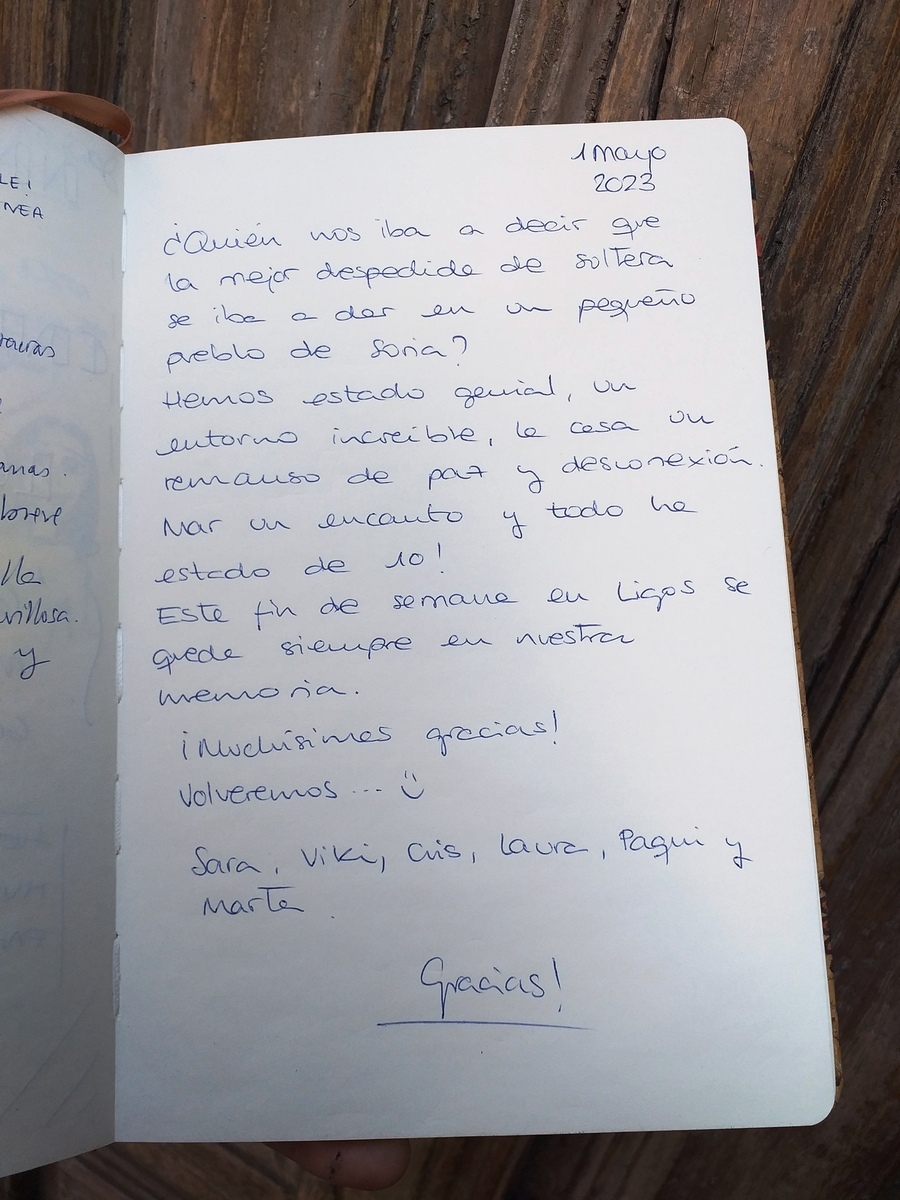 LE!
NEA
anas.
breve
lla
villosa.
y
1 Mayo
2023
¿Quién nos iba a decir que
la mejor despedida de soltera
se iba a dar en un pequeño
pueblo de Soria?
Hemos estado genial, un
entorno increíble, la casa un
remanso de paz y desconexión.
Mar un encanto y todo ha
estado de 10!
Este fin de semana en Ligos se
queda siempre en nuestra
memoria.
¡Muchísimas gracias!
Volveremos... :)
Sara, Viki, Cris, Laura, Paqui y
Marta.
Gracias!